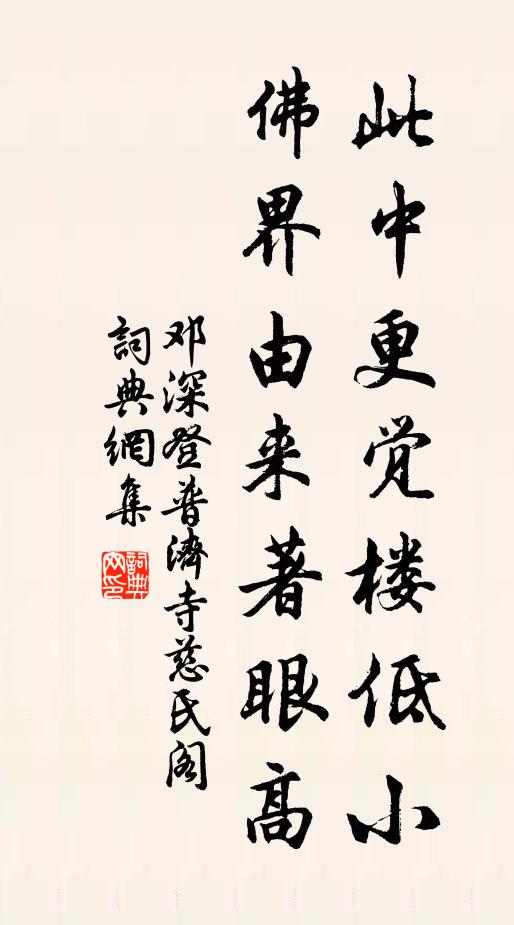 此中更觉楼低小
佛界由来著眼高
邓深登普濟寺慈氏阁
詞典網集
詞典网印